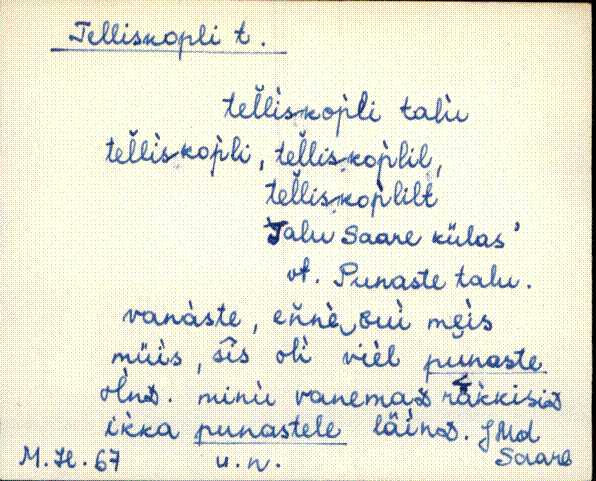 Telliskopli t.
tel̆l̆ìskop̀li talu
tel̆l̆ìskop̀li, tel̆l̆iskop̀lil,
tel̆l̆iskop̀lilt
Talu Saare külas'
vt. Punaste talu.
vanàste, en̆nè kui
müìs, sîs olì vièl punaste
òlnD. minù vanemaD ràkkisiD
ikka punastele läìnD. JMd
M.H. 67 u.n. Saare